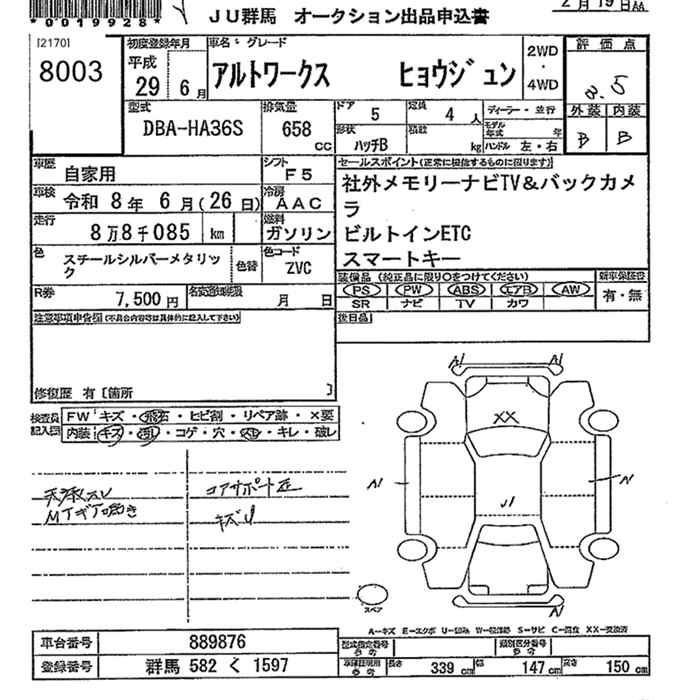 *0019928*
JU群馬 オークション出品申込書
2月19日AA
[2170]
8003
初度登録年月
平成
29 6月
車名・グレード
アルトワークス ヒョウジュン
2WD
・
4WD
評価点
3.5
外装 内装
B B
型式
DBA-HA36S
排気量
658
cc
ドア 5
定員 4 人
形状
ハッチB
積載
kg
ディーラー・並行
モデル年式 年
ハンドル 左・右
車歴
自家用
シフト
F5
車検
令和 8年 6月(26日)
冷房
AAC
走行
8万8千085 km
燃料
ガソリン
色
スチールシルバーメタリック
色替
色コード
ZVC
R券
7,500円
名変期限
月 日
セールスポイント(正常に機能するものに限ります)
社外メモリーナビTV&バックカメラ
ビルトインETC
スマートキー
装備品(純正品に限り○をつけてください)
PS PW ABS エアB AW
SR ナビ TV カワ
新車保証書
有・無
後日品
注意事項申告欄(不具合内容等は具体的に記入して下さい)
修復歴 有〔箇所 〕
検査員記入欄
FW キズ・飛石・ヒビ割・リペア跡・×要
内装 キズ・汚レ・コゲ・穴・スレ・キレ・破レ
コアサポート歪
MTギア鳴き
キズU
A1 A1
XX
A1 A1
U1
A1
スペア
A-キズ E-エクボ U-凹み W-板跡 S-サビ C-腐食 XX-交換済
車台番号
889876
登録番号
群馬 582 く 1597
型式指定番号 参考
類別区分番号 参考
車庫証明用 参考
長さ 339cm
幅 147cm
高さ 150cm